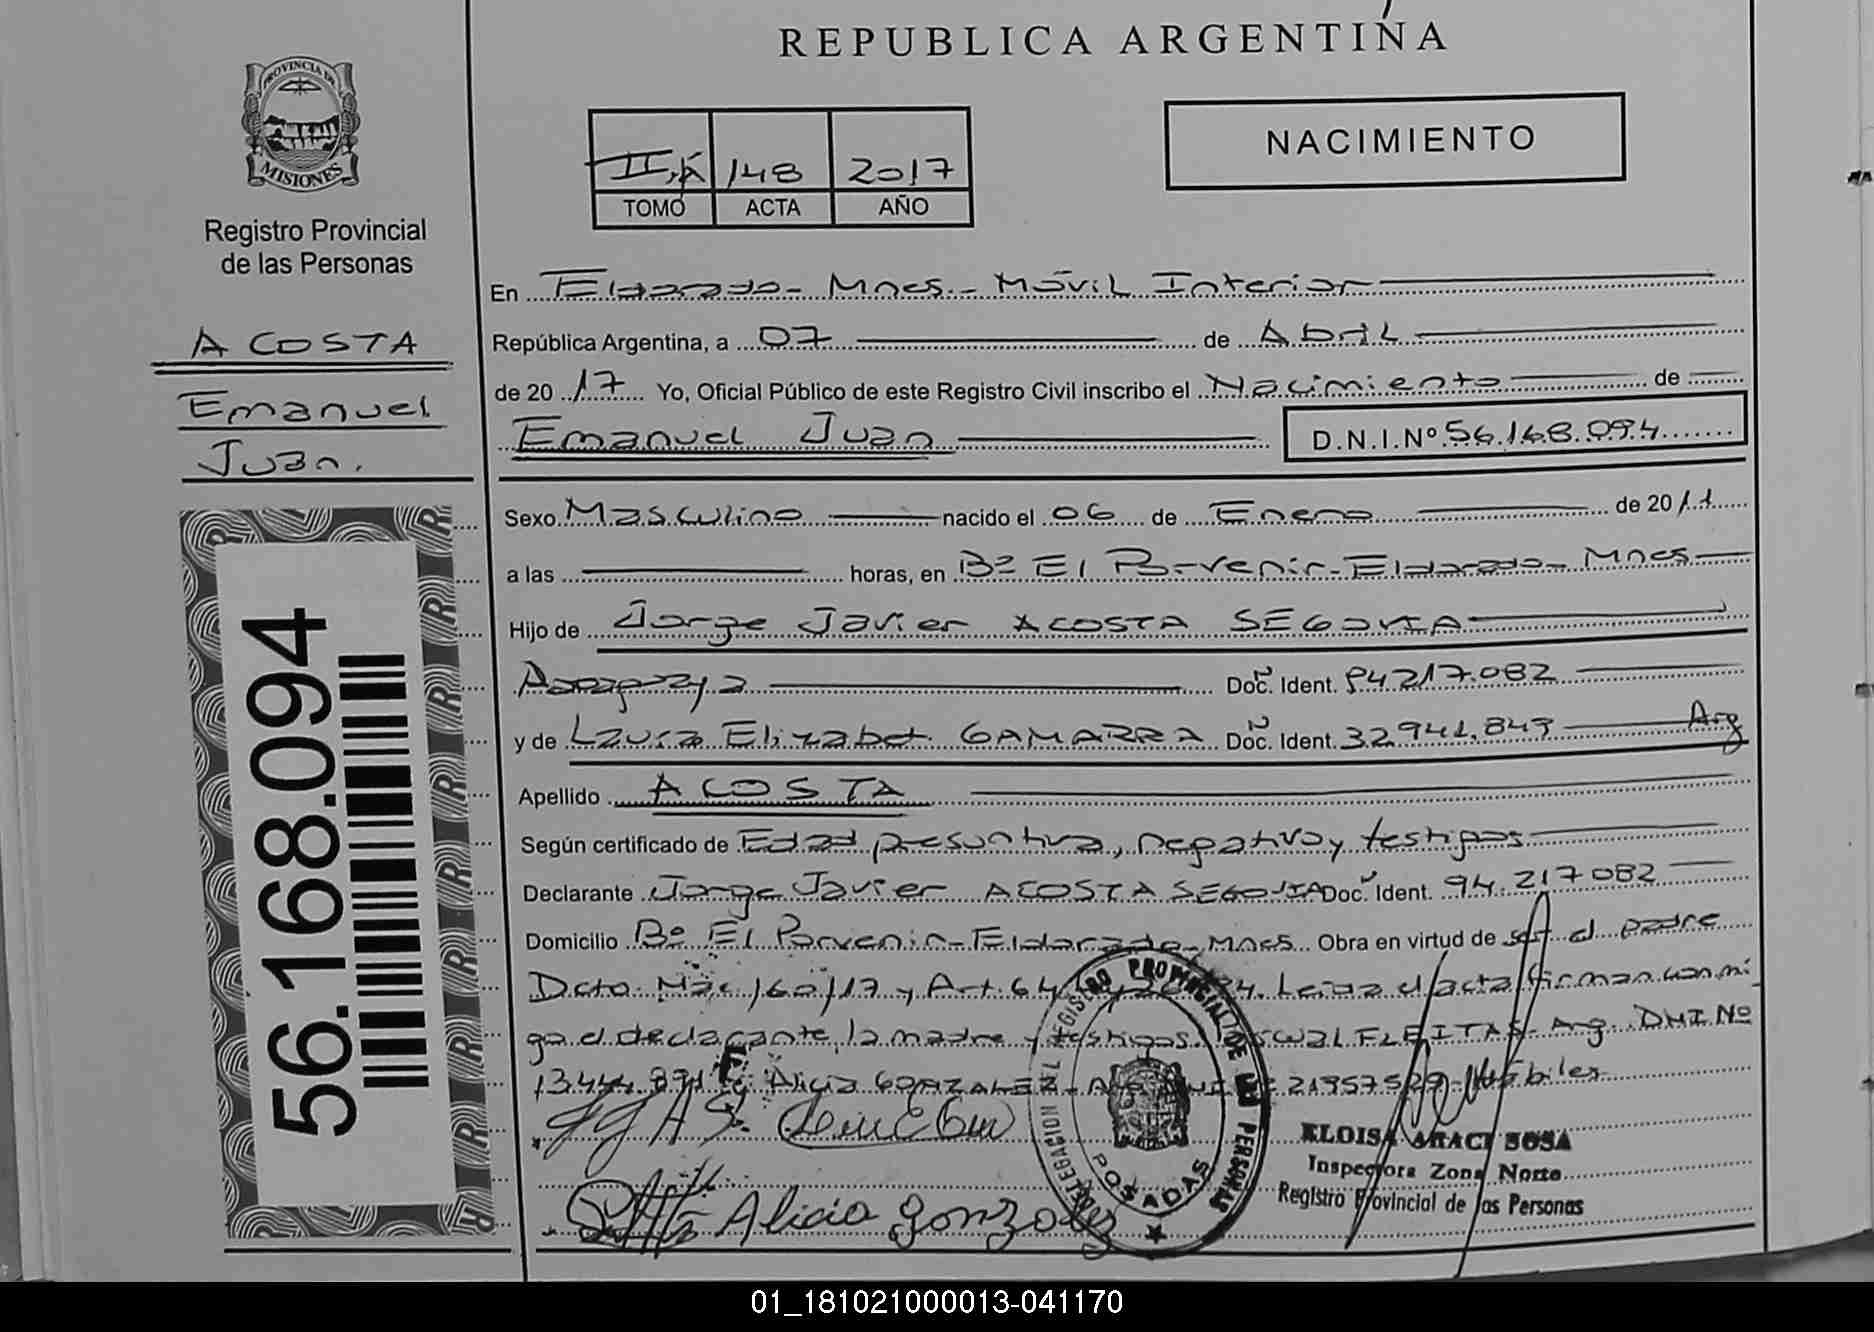 REPUBLICA ARGENTINA
PROVINCIA DE
MISIONES
Registro Provincial
de las Personas
II,A 148 2017
TOMO ACTA AÑO
NACIMIENTO
ACOSTA
Emanuel
Juan.
56.168.094
En Eldorado- Mnes.- Móvil Interior
República Argentina, a 07 de Abril
de 2017 Yo, Oficial Público de este Registro Civil inscribo el Nacimiento de
Emanuel Juan D.N.I.Nº 56.168.094
Sexo Masculino nacido el 06 de Enero de 2011
a las horas, en Bº El Porvenir-Eldorado- Mnes
Hijo de Jorge Javier ACOSTA SEGOVIA
Paraguaya Doc. Ident. 94217.082
y de Laura Elizabet GAMARRA Doc. Ident. 32941.849 Arg
Apellido ACOSTA
Según certificado de Edad presuntiva, negativo y testigos
Declarante Jorge Javier ACOSTA SEGOVIA Doc. Ident. 94.217082
Domicilio Bº El Porvenir-Eldorado-Mnes Obra en virtud de ser el padre
Dcto. Nac 160/17 y Art. 64 Leida el acta firman conmi
go el declarante, la madre y testigos FLEITAS- Arg. DNI Nº
13.444.891 y Alicia GONZALEZ- 21957529- Hábiles
Alicia Gonzalez
DELEGACION DEL REGISTRO PROVINCIAL DE LAS PERSONAS
POSADAS
ELOISA ARACI SOSA
Inspectora Zona Norte
Registro Provincial de las Personas
01_181021000013-041170